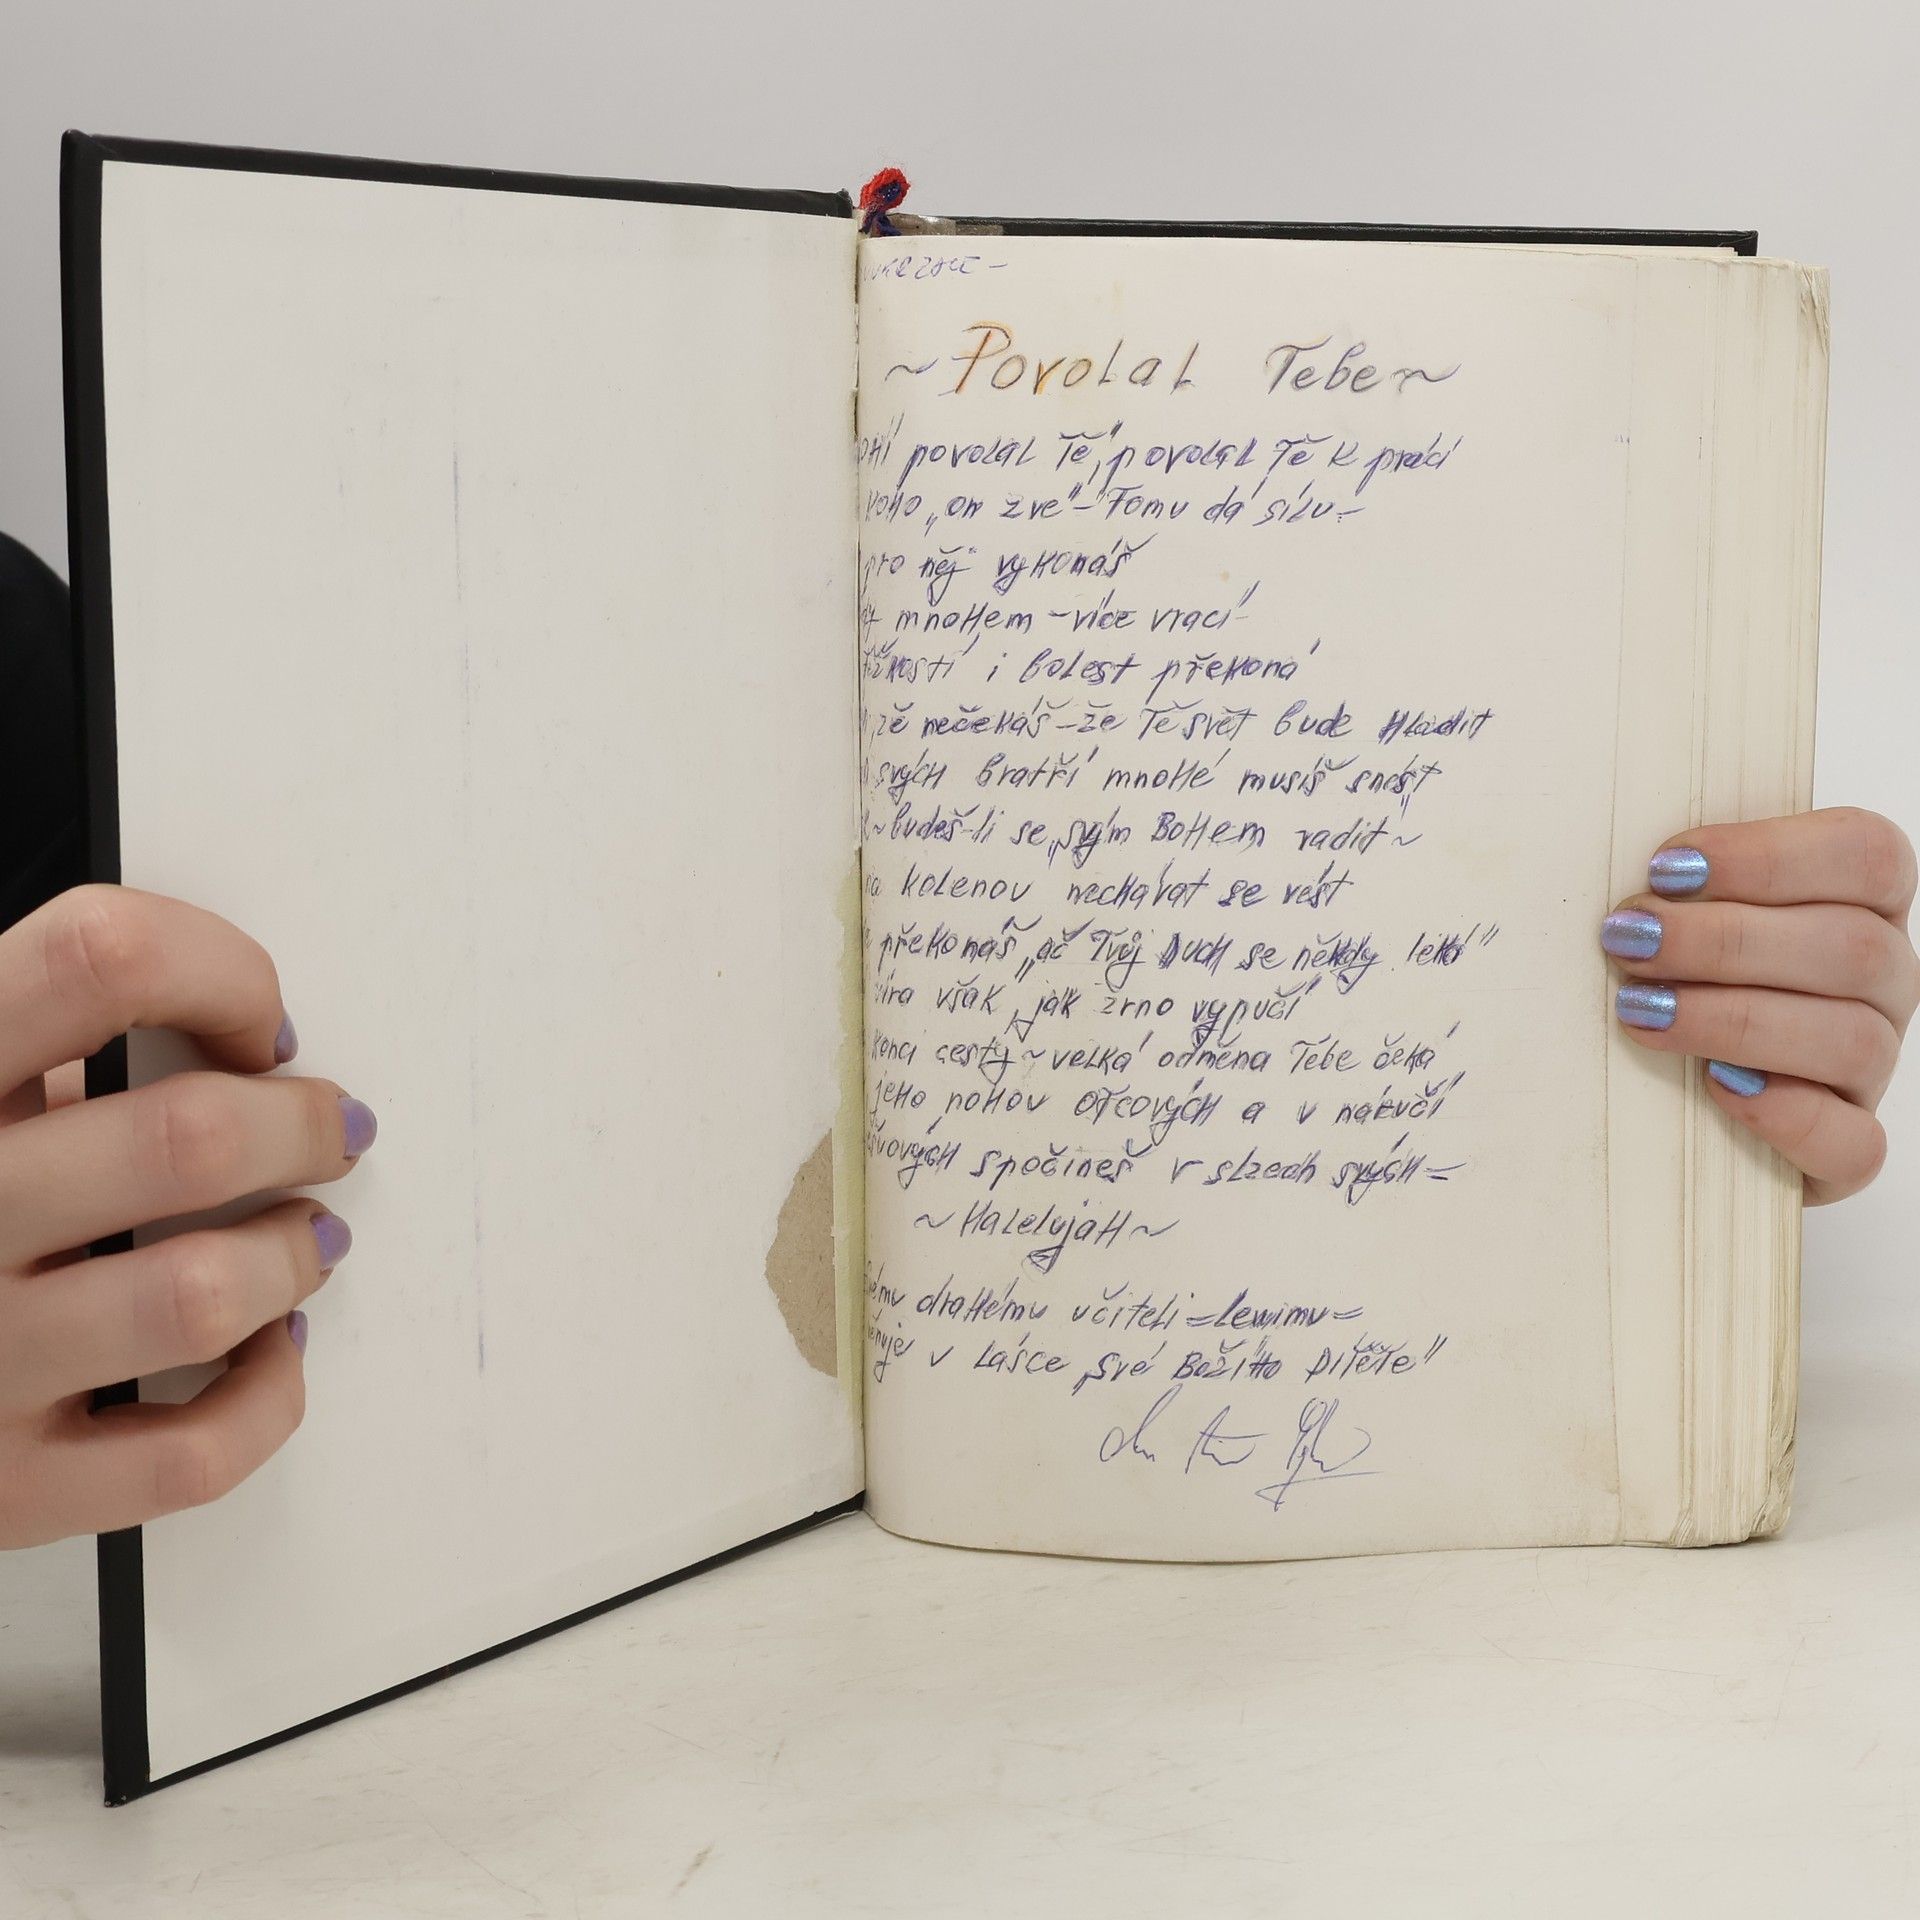 ~ Povolal Tebe ~
povolal Tě," povolal Tě k práci
koho „on zve" – Tomu dá sílu –
pro něj vykonáš
mnohem – více vrací –
i bolest překoná
že nečekáš – že Tě svět bude hladit
svých bratří mnohé musíš snášt
~ budeš-li se „svým Bohem radit ~
na kolenou nechávat se vést
překonáš „ač Tvůj Duch se někdy leká"
víra však „jak zrno vypučí
konci cesty ~ velká odměna Tebe čeká
jeho nohou Otcových a v náručí
spočineš v slzech svých =
~ Halelujah ~
drahému učiteli = Lewimu =
v Lásce „své Božího Dítěte"